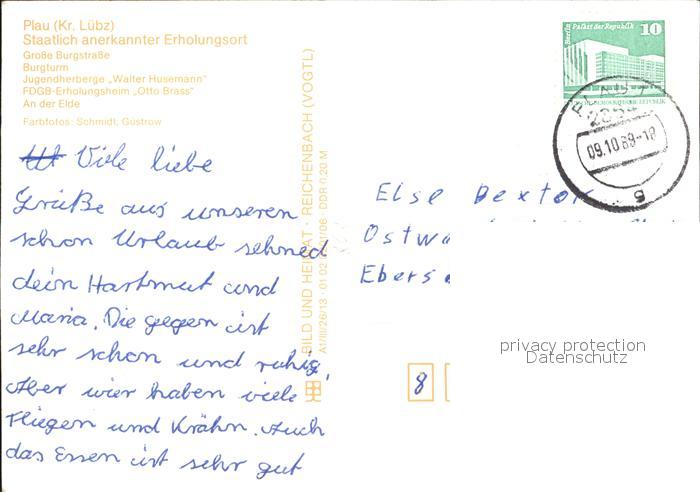 Plau (Kr. Lübz)
Staatlich anerkannter Erholungsort
Große Burgstraße
Burgturm
Jugendherberge „Walter Husemann“
FDGB-Erholungsheim „Otto Brass“
An der Elde
Farbfotos: Schmidt, Güstrow
Viele liebe
Grüße aus unseren
schon Urlaub sehned
dein Hartmut und
Maria. Die gegen ist
sehr schon und ruhig.
Aber wier haben viele
Fliegen und Krähn. Auch
das Essen ist sehr gut
BILD UND HEIMAT · REICHENBACH (VOGTL)
A1/III/26/13 · 01 02 DDR 1,20 M
Berlin Palast der Republik
10
09.10.89-18
Else Dextor
Ostwa
Ebers
privacy protection
Datenschutz
8